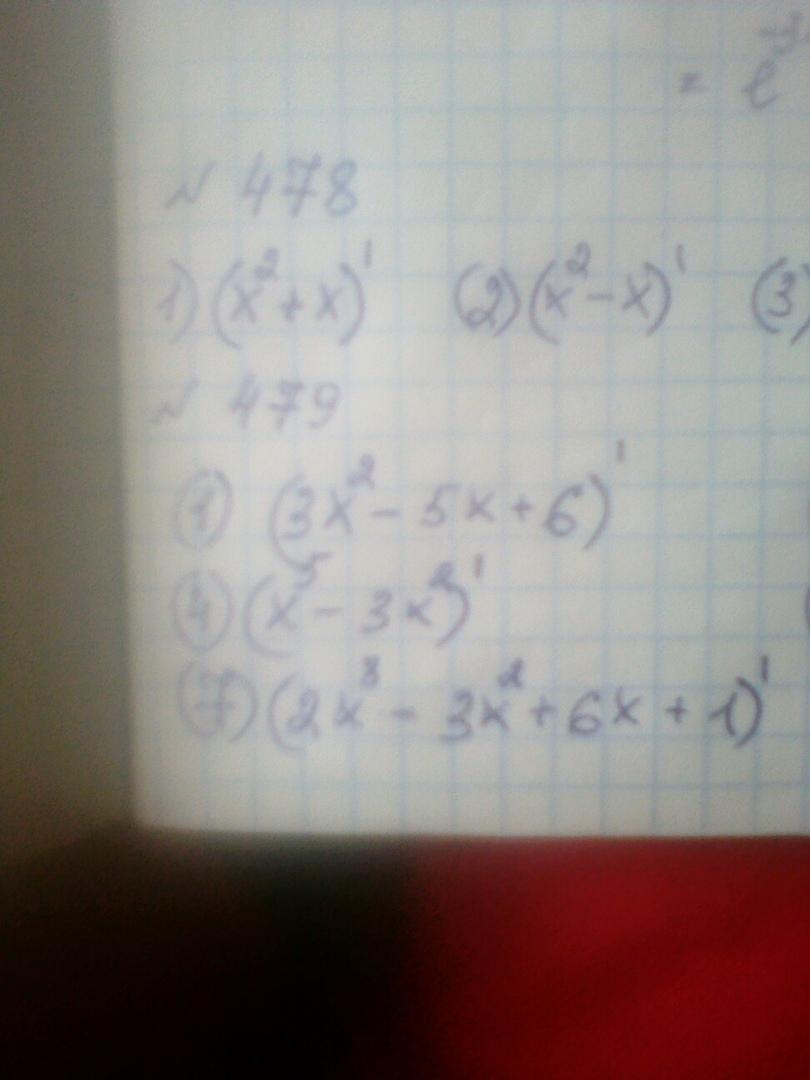 = e
N 478
1) (x² + x)' (2) (x² - x)' (3)
N 479
(1) (3x² - 5x + 6)'
(4) (x⁵ - 3x²)'
(7) (2x³ - 3x² + 6x + 1)'